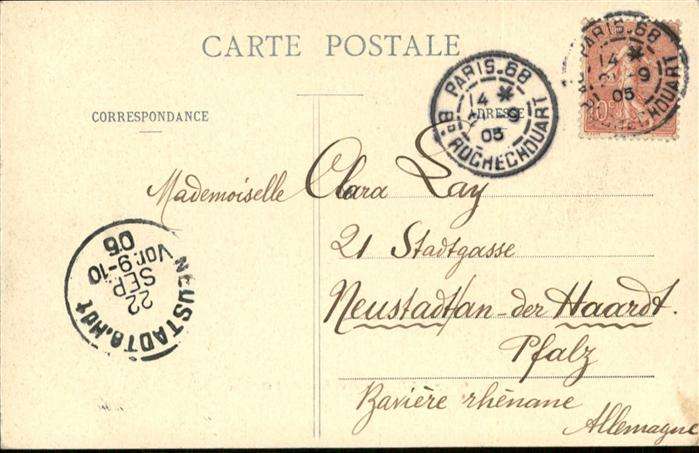 CARTE POSTALE
CORRESPONDANCE
ADRESSE
PARIS.68
4 *
9
05
Bd ROCHECHOUART
PARIS.68
14 *
9
05
ROCHECHOUART
10c
Mademoiselle Clara Lay
21 Stadtgasse
Neustadt/an-der Haardt.
Pfalz
Bavière rhénane
Allemagne
NEUSTADT a.Hdt
22
SEP
Vor. 9-10
05